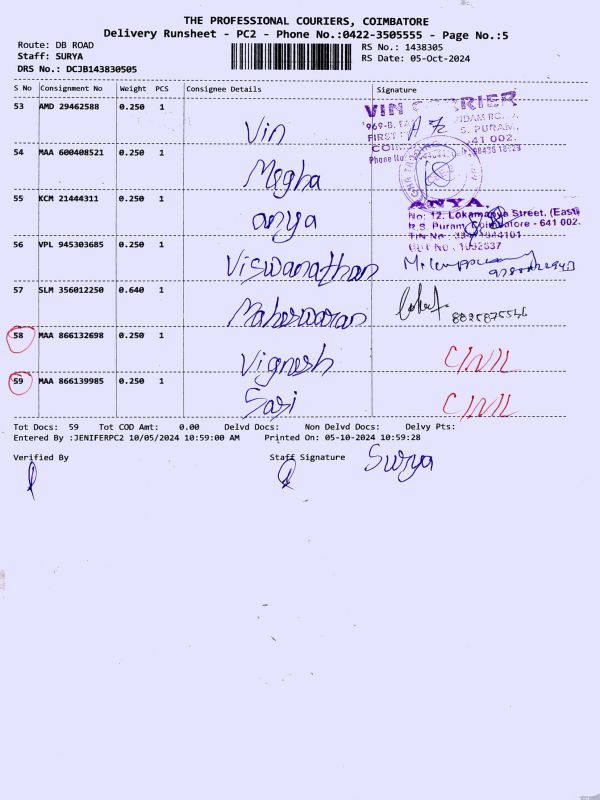 THE PROFESSIONAL COURIERS, COIMBATORE
Delivery Runsheet - PC2 - Phone No.:0422-3505555 - Page No.:5
Route: DB ROAD
RS No.: 1438305
Staff: SURYA
RS Date: 05-Oct-2024
DRS No.: DCJB143830505
S No Consignment No Weight PCS Consignee Details Signature
53 AMD 29462588 0.250 1 Vin
54 MAA 600408521 0.250 1 Megha
55 KCM 21444311 0.250 1 anya
ANYA.
No: 12, Lokamanya Street, (East)
R.S. Puram, Coimbatore - 641 002.
56 VPL 945303685 0.250 1 Viswanathan
57 SLM 356012250 0.640 1 Maheswaran
8825875546
58 MAA 866132698 0.250 1 Vignesh
59 MAA 866139985 0.250 1 Sasi
Tot Docs: 59 Tot COD Amt: 0.00 Delvd Docs: Non Delvd Docs: Delvy Pts:
Entered By :JENIFERPC2 10/05/2024 10:59:00 AM Printed On: 05-10-2024 10:59:28
Verified By Staff Signature Surya